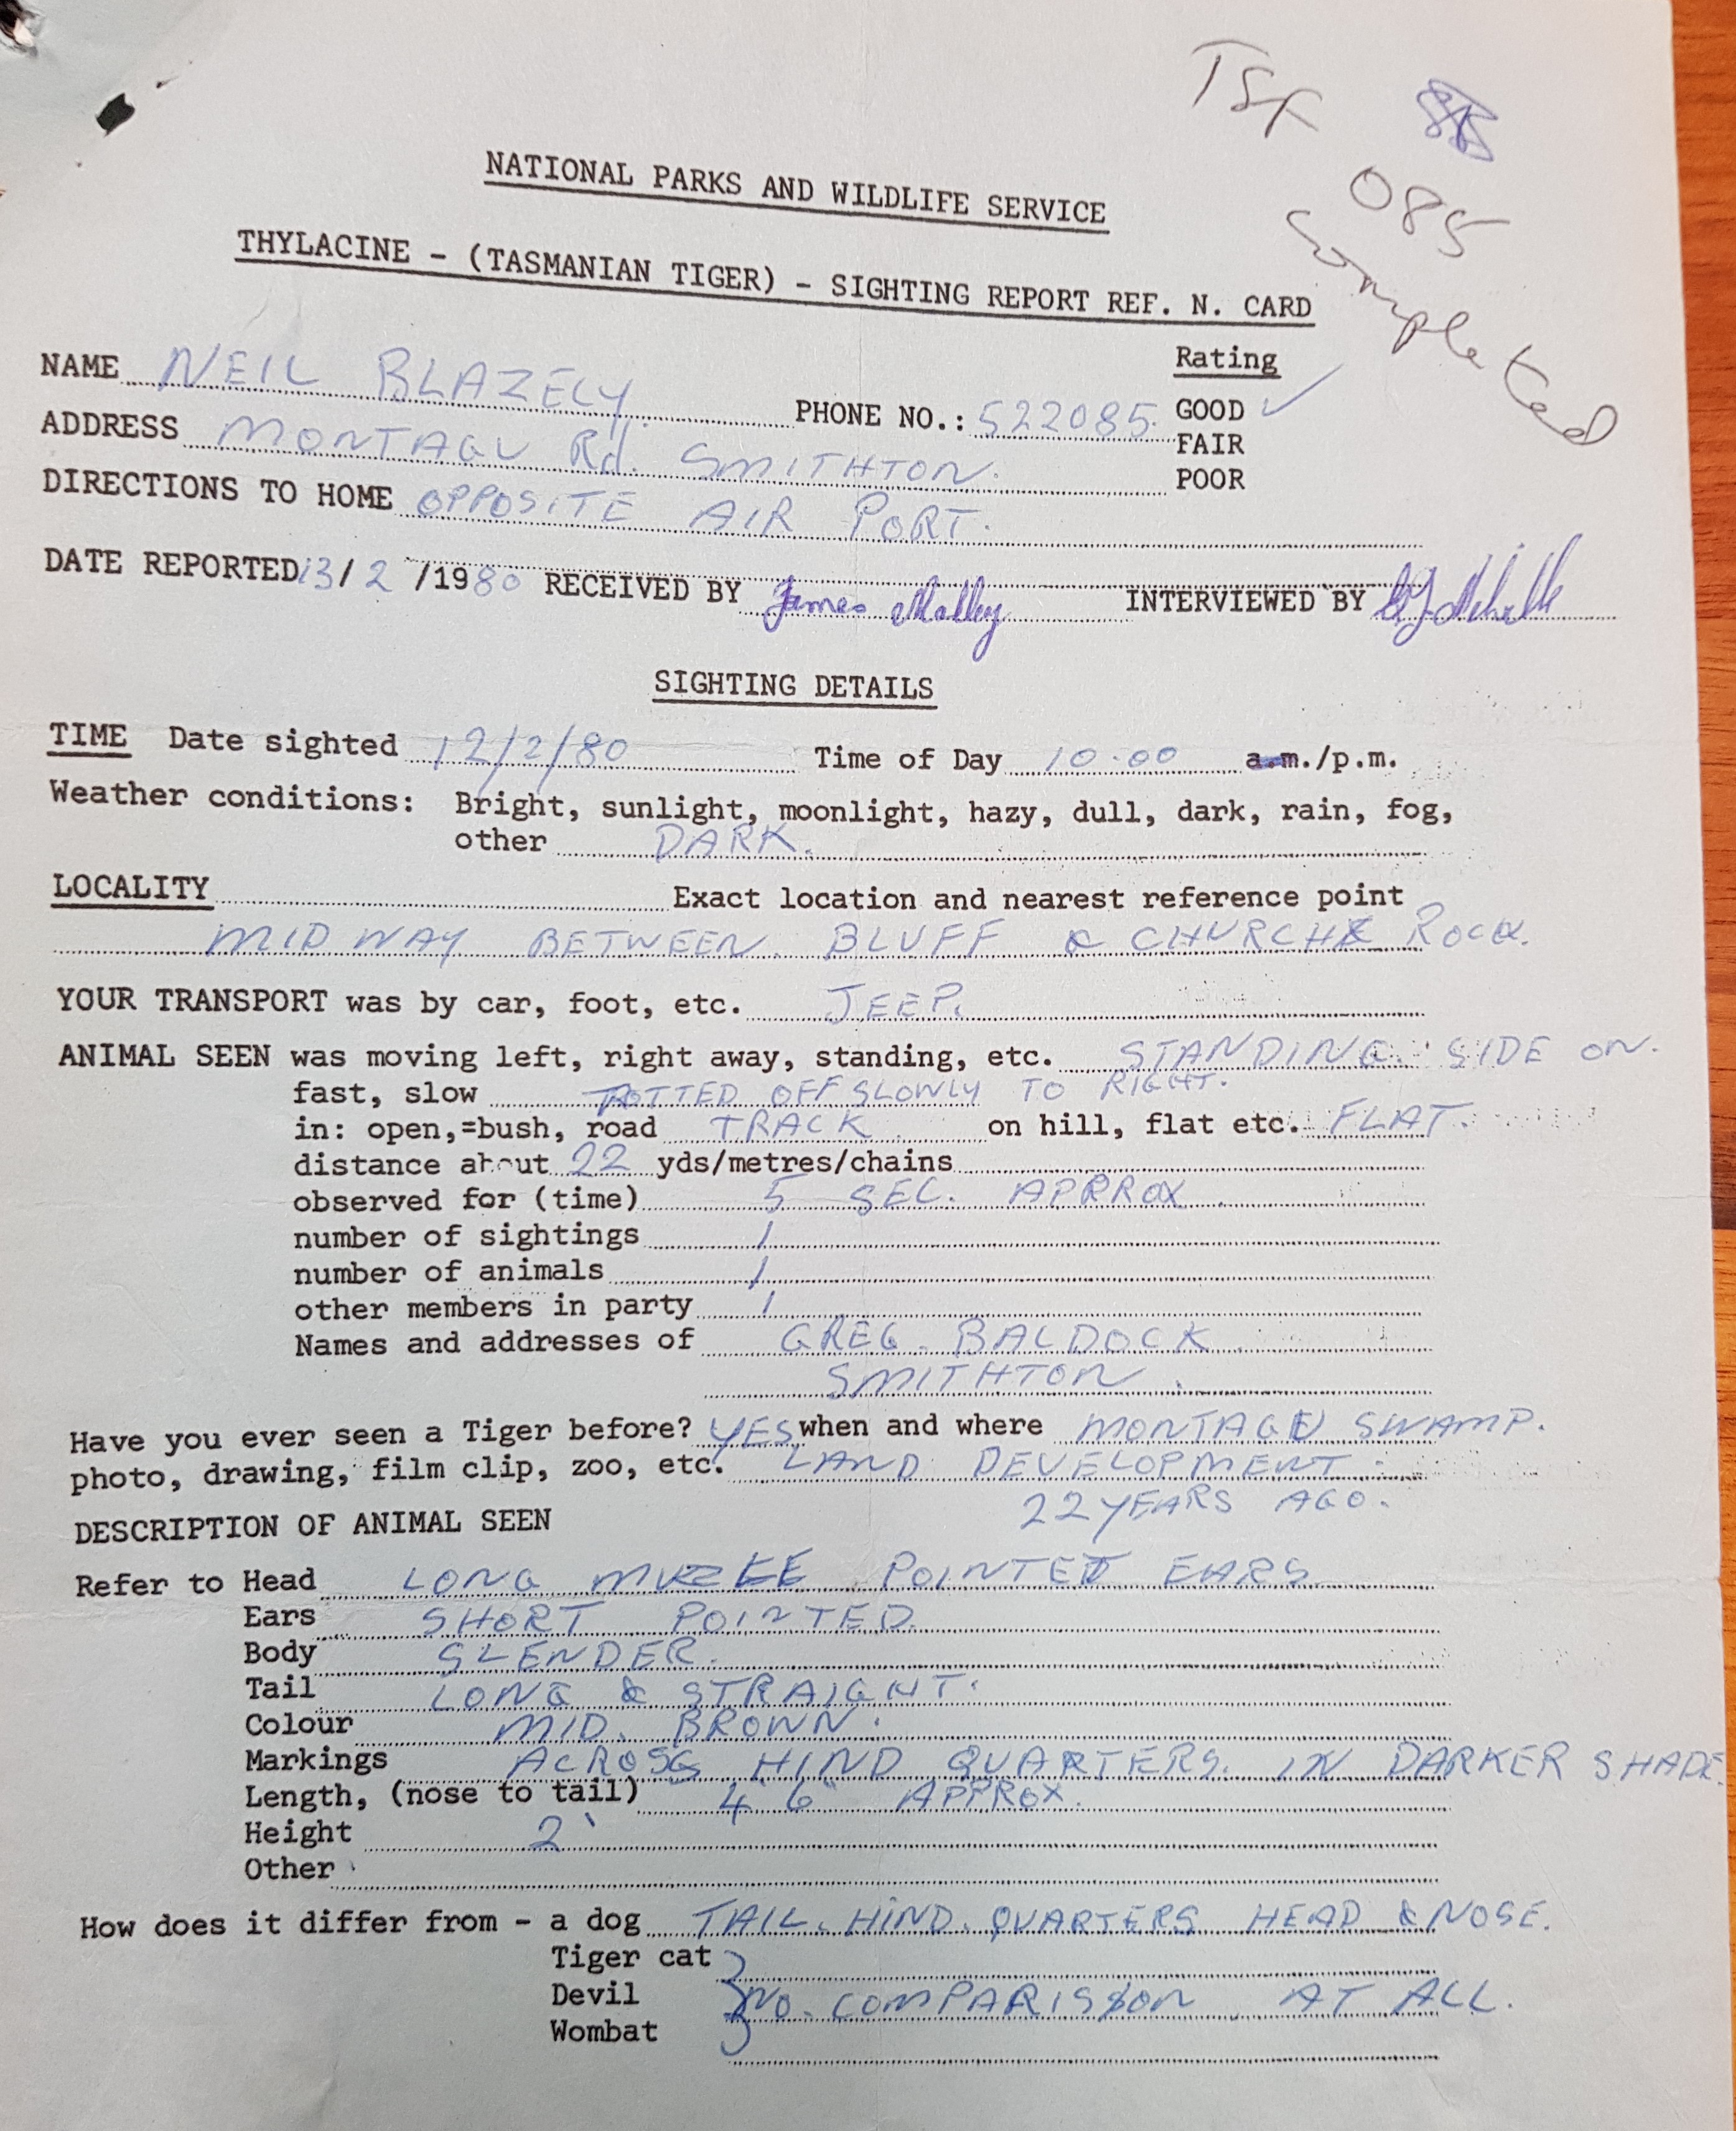 TSF
085
completed
NATIONAL PARKS AND WILDLIFE SERVICE
THYLACINE - (TASMANIAN TIGER) - SIGHTING REPORT REF. N. CARD
NAME NEIL BLAZELY. PHONE NO.: 522085.
Rating
GOOD ✓
FAIR
POOR
ADDRESS MONTAGU Rd. SMITHTON.
DIRECTIONS TO HOME OPPOSITE AIR PORT.
DATE REPORTED 13/2/1980 RECEIVED BY James Malley INTERVIEWED BY
SIGHTING DETAILS
TIME Date sighted 12/2/80 Time of Day 10.00 a.m./p.m.
Weather conditions: Bright, sunlight, moonlight, hazy, dull, dark, rain, fog,
other DARK.
LOCALITY Exact location and nearest reference point
MIDWAY BETWEEN BLUFF & CHURCH ROCK.
YOUR TRANSPORT was by car, foot, etc. JEEP.
ANIMAL SEEN was moving left, right away, standing, etc. STANDING SIDE ON.
fast, slow TROTTED OFF SLOWLY TO RIGHT.
in: open,=bush, road TRACK on hill, flat etc. FLAT.
distance about 22 yds/metres/chains
observed for (time) 5 SEC. APPROX.
number of sightings 1
number of animals 1
other members in party 1
Names and addresses of GREG. BALDOCK.
SMITHTON.
Have you ever seen a Tiger before? YES when and where MONTAGU SWAMP.
photo, drawing, film clip, zoo, etc. LAND DEVELOPMENT.
22 YEARS AGO.
DESCRIPTION OF ANIMAL SEEN
Refer to Head LONG MUZZLE POINTED EARS
Ears SHORT POINTED.
Body SLENDER.
Tail LONG & STRAIGHT.
Colour MID. BROWN.
Markings ACROSS HIND QUARTERS. IN DARKER SHADE.
Length, (nose to tail) 4' 6" APPROX.
Height 2'
Other
How does it differ from - a dog TAIL. HIND. QUARTERS HEAD & NOSE.
Tiger cat
Devil NO. COMPARISON AT ALL.
Wombat